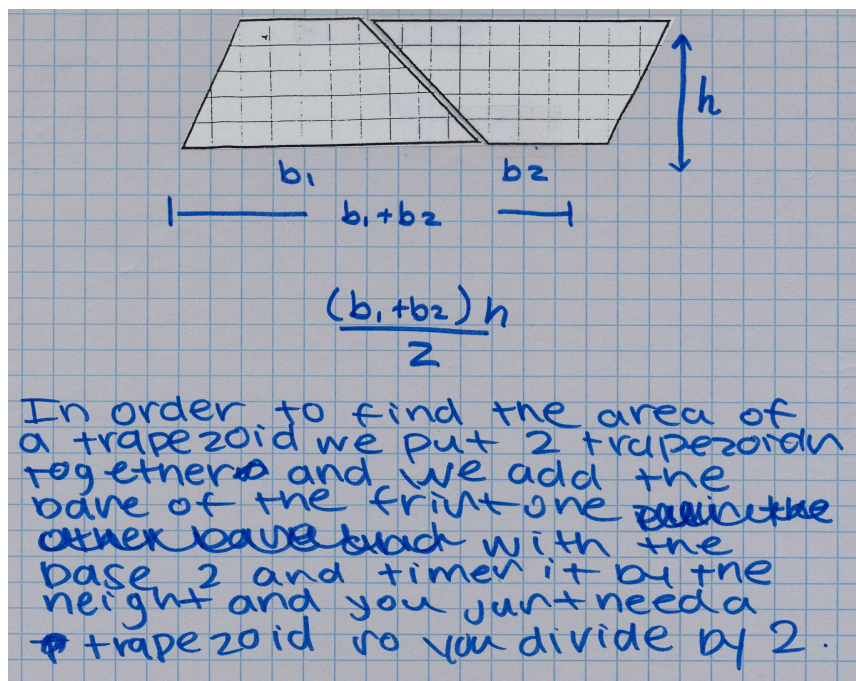 h
b1 b2
b1+b2
(b1+b2)h
2
In order to find the area of
a trapezoid we put 2 trapezoids
together and we add the
base of the first one
with the
base 2 and times it by the
height and you just need a
trapezoid so you divide by 2.